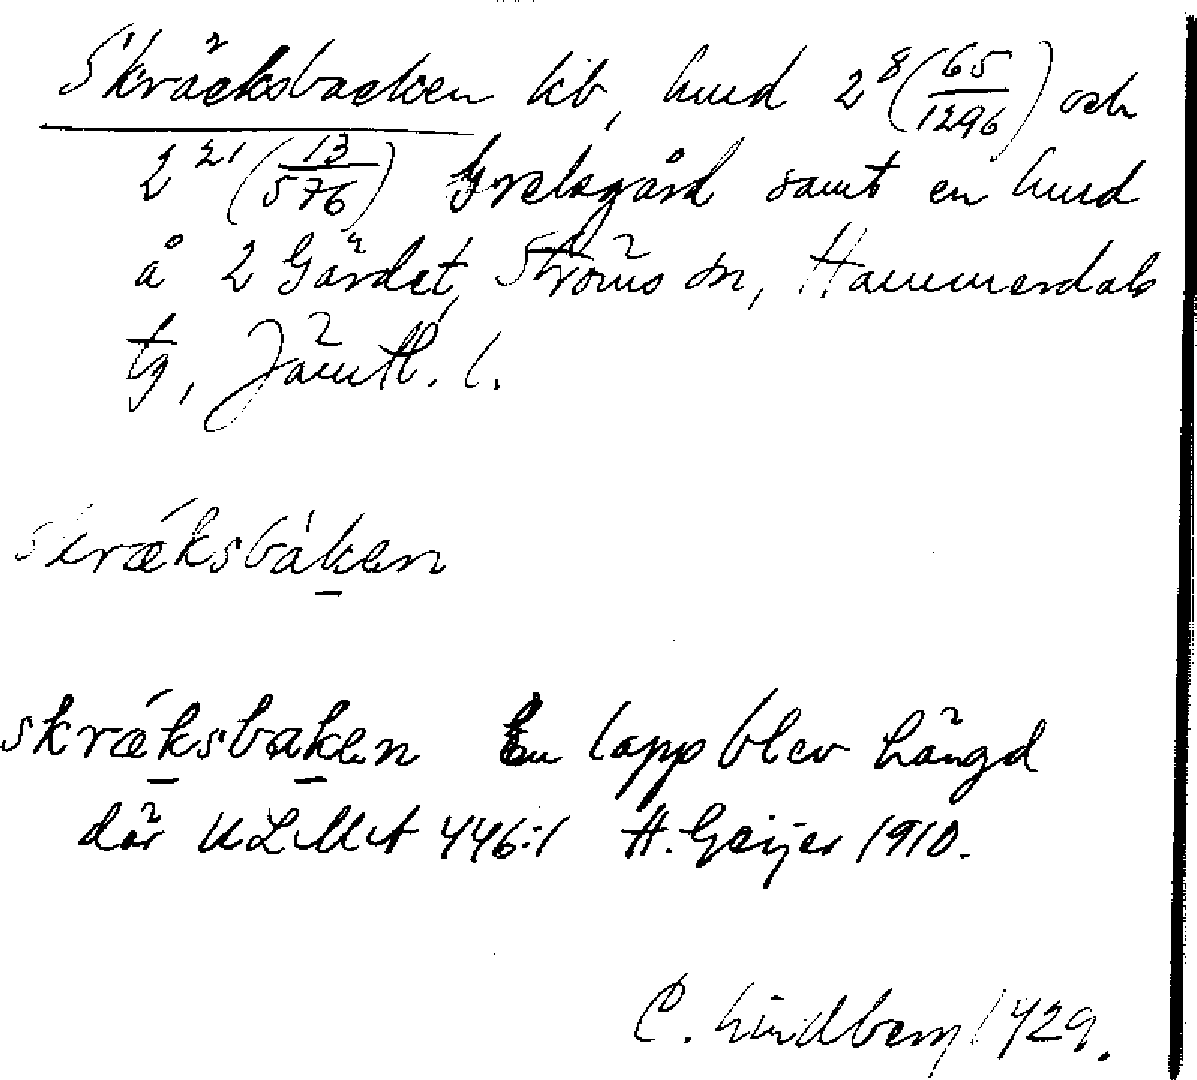 Skräcksbacken lib, hmd 2⁸(65/1296) och
2²¹(13/576) Grelsgård samt en hmd
å 2 Gärdet, Ströms sn, Hammerdals
tg, Jämtl. l.
skrǽksbáken
skrǽksbaken En lapp blev hängd
där ULMA 446:1 H. Geijer 1910.
C. Lindberg 1929.